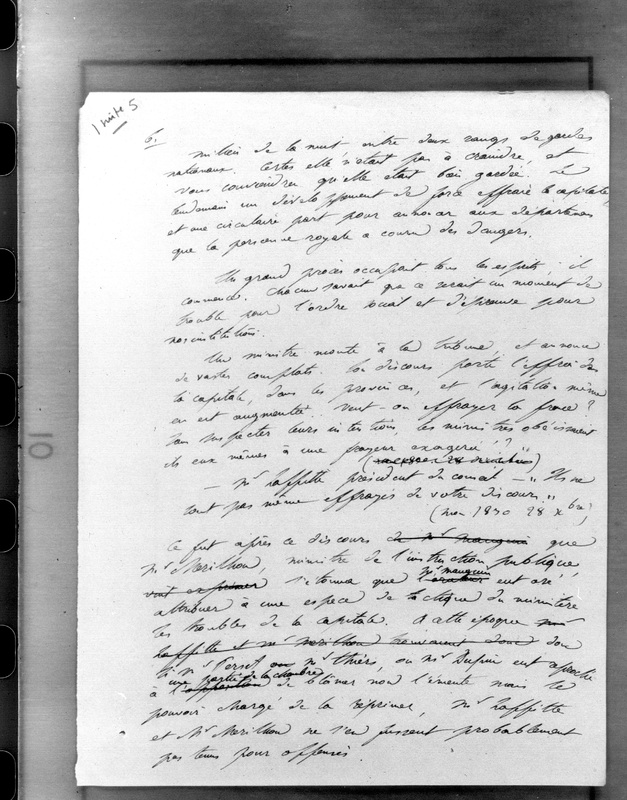 1 suite 5
6. milieu de la nuit entre deux rangs de gardes
nationaux. Certes elle n'était pas à craindre, et
vous conviendrez qu'elle était bien gardée. Le
lendemain un développement de force effraie la capitale,
et une circulaire part pour annoncer aux départemens
que la personne royale a couru des dangers.
Un grand procès occupait tous les esprits; il
commence. Chacun savait que ce serait un moment de
trouble pour l'ordre social et d'épreuve pour
nos institutions.
Un ministre monte à la tribune et annonce
de vastes complots. Son discours porte l'effroi dans
la capitale, dans les provinces, et l'agitation même
en est augmentée. Veut-on effrayer la france?
Sans suspecter leurs intentions, les ministres obéissent
ils eux mêmes à une frayeur exagérée?"
— Mr. Laffitte président du conseil — "Ils ne
sont pas même effrayés de votre discours."
(mon 1830 28 Xbre)
Ce fut après ce discours de Mr. Mauguin que
Mr. Merilhou, ministre de l'instruction publique,
vint exprimer s'étonna que l'orateur Mr. mauguin eut osé
attribuer à une espèce de tactique du ministère
les troubles de la capitale. A cette époque
Laffitte et Mr. Merilhou trouvaient donc
si Mr. Persil ou Mr. thiers, ou Mr. Dupin eut reproché
à l'opposition une partie de la chambre de blâmer non l'émeute mais le
pouvoir chargé de la réprimer, Mr. Laffitte
et Mr. Merilhou ne s'en fussent probablement
pas tenus pour offensés.